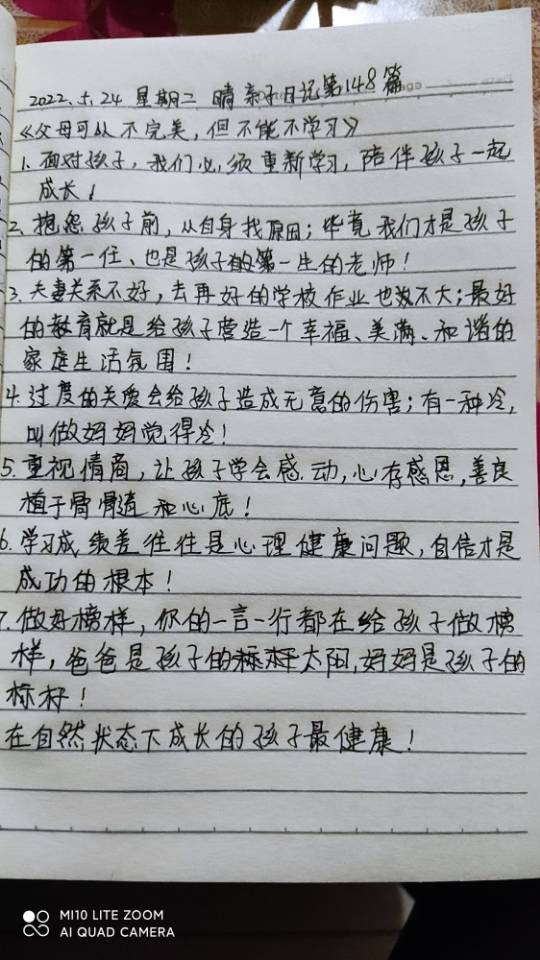 2022.5.24 星期二 晴 亲子日记第148篇
《父母可以不完美，但不能不学习》
1.面对孩子，我们必须重新学习，陪伴孩子一起
成长！
2.抱怨孩子前，从自身找原因；毕竟我们才是孩子
的第一任、也是孩子的第一生的老师！
3.夫妻关系不好，去再好的学校作业也效不大；最好
的教育就是给孩子营造一个幸福、美满、和谐的
家庭生活氛围！
4.过度的关爱会给孩子造成无意的伤害；有一种冷，
叫做妈妈觉得冷！
5.重视情商，让孩子学会感动，心存感恩，善良
植于骨髓和心底！
6.学习成绩差往往是心理健康问题，自信才是
成功的根本！
7.做好榜样，你的一言一行都在给孩子做榜
样，爸爸是孩子的太阳，妈妈是孩子的
标杆！
在自然状态下成长的孩子最健康！
MI10 LITE ZOOM
AI QUAD CAMERA